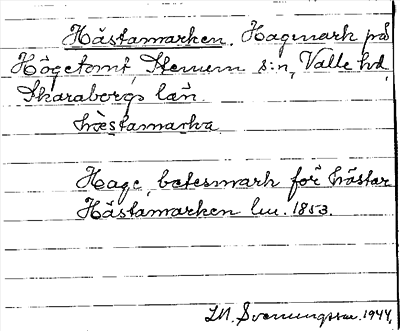 Hästamarken. Hagmark på
Högetomt, Stenum s:n, Valle hd,
Skaraborgs län.
hæstamarka
Hage, betesmark för hästar
Hästamarken lm. 1853.
Svenungsson 1944.